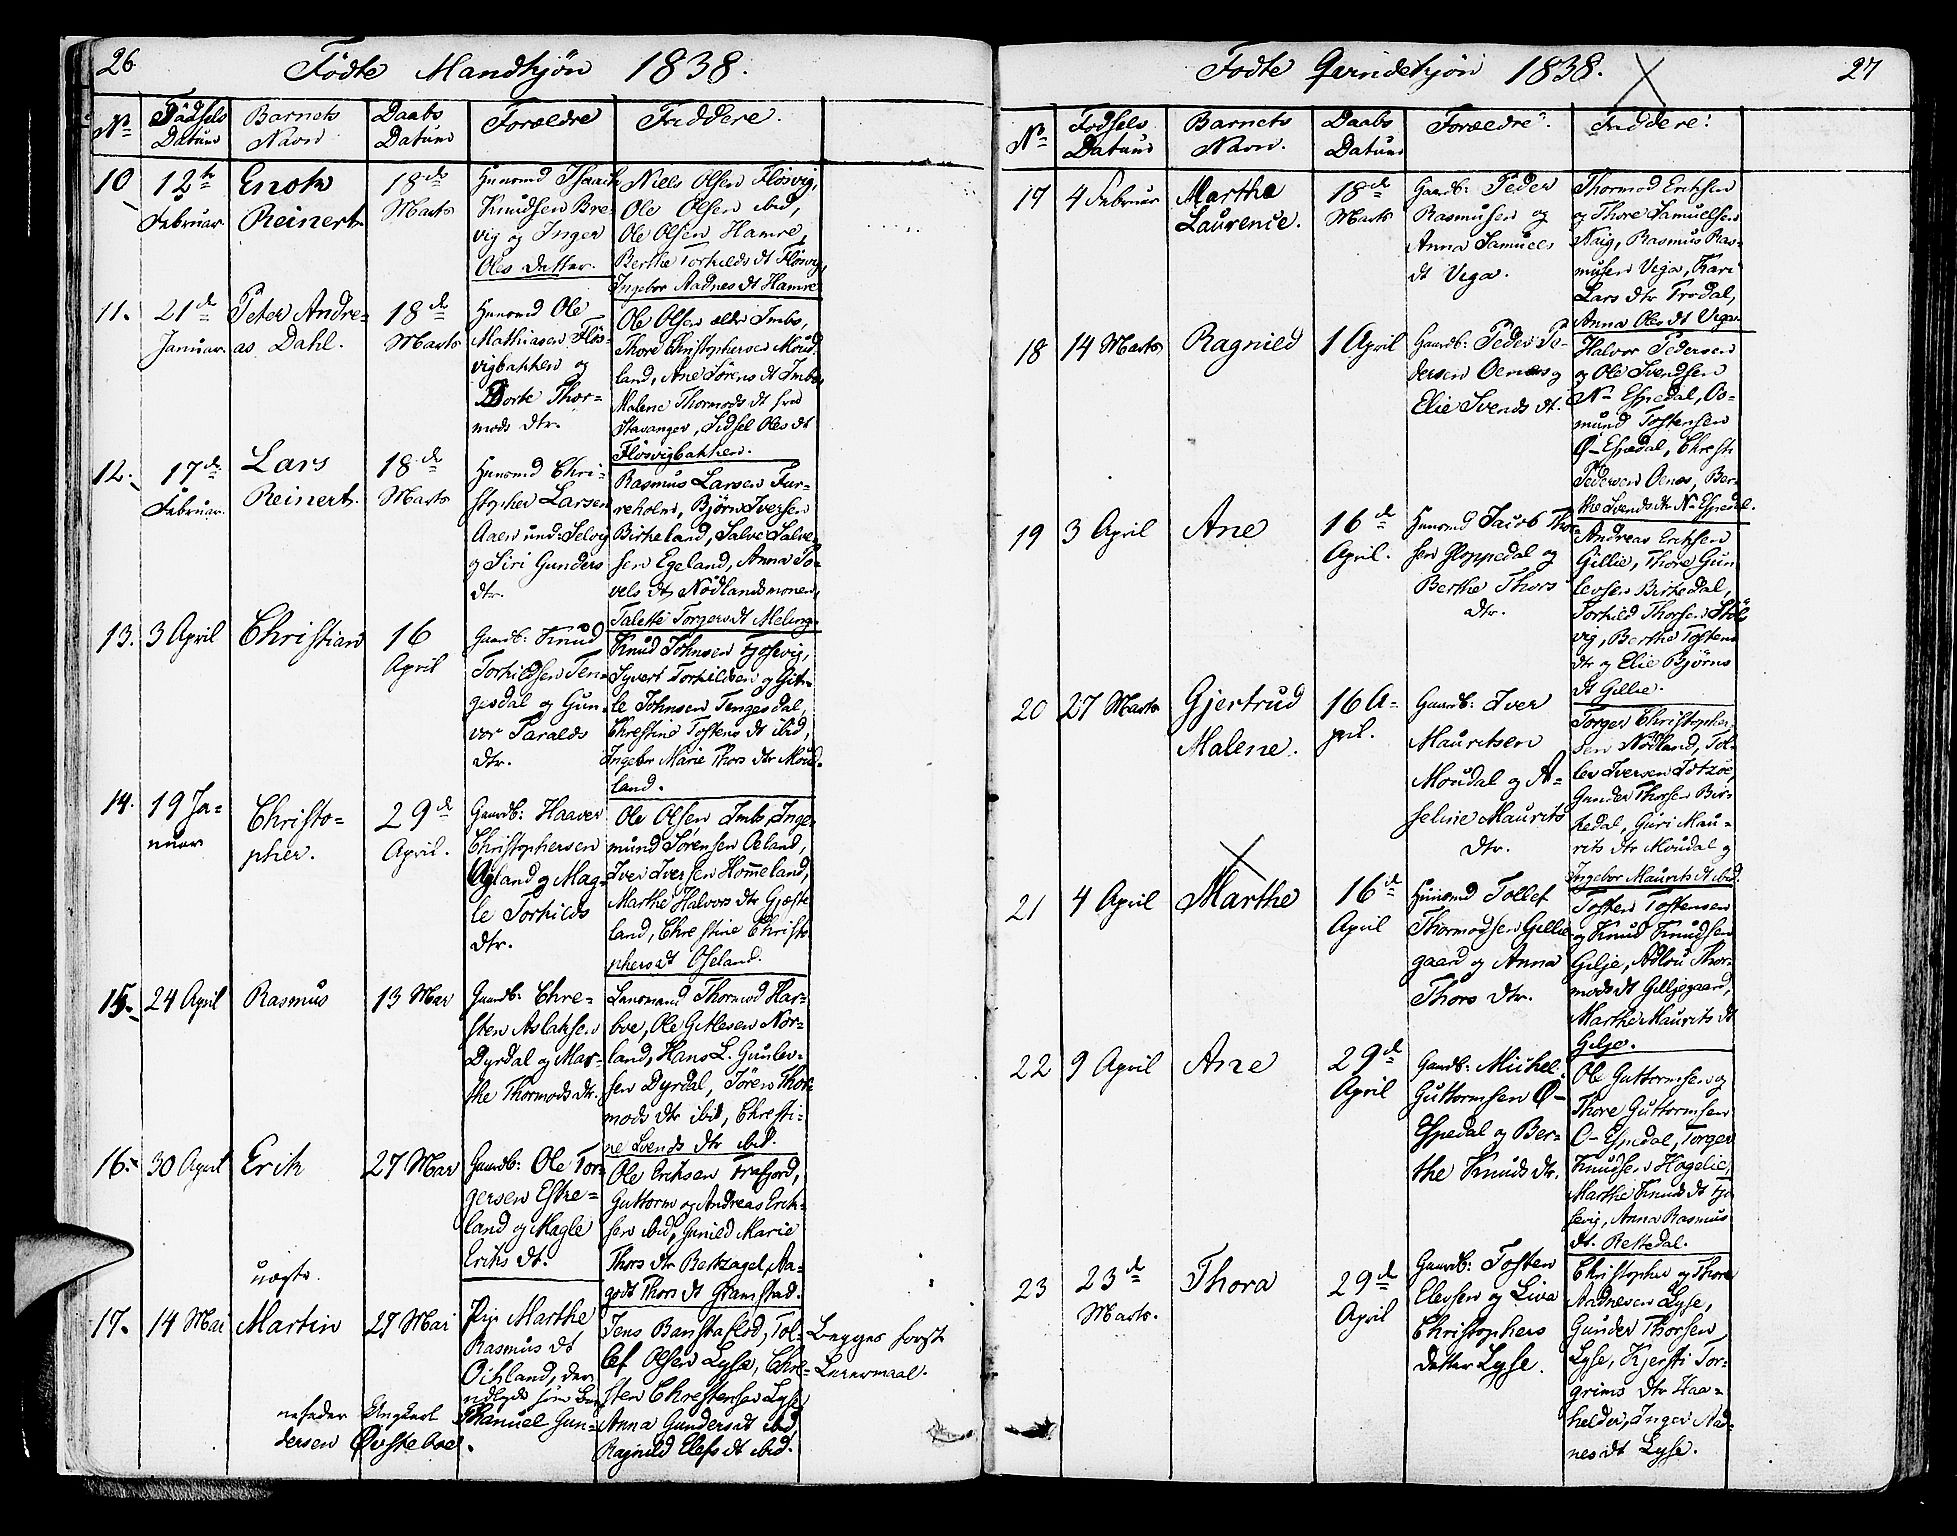 26
Födte Mandkjøn 1838.
No
Födsels Datum
Barnets Navn
Daabs Datum
Forældre
Faddere.
10
12te Februar
Enok Reinert
18de Marts
Huusmd Isaach
Knudsen Bre-
vig og Inger
Oles datter.
Niels Olsen Fløsvig,
Ole Olsen ibid,
Ole Olsen Hamre,
Berthe Torkilds dt Fløsvig,
Ingebor Aadnes dt Hamre
11.
21de Januar.
Peter Andre-
as Dahl.
18de Marts
Huusmd Ole
Mathiasen Fløs-
vigbakken og
Dorte Thor-
mods dtr.
Ole Olsen ældre Imbs,
Thore Christophersen Moud-
land, Ane Sörens dt Imbs,
Malene Thormods dt fra
Stavanger, Sidsel Oles dt
Fløsvigbakken.
12.
17de Februar.
Lars
Reinert.
18de Marts
Huusmd Chri-
stopher Larsen
Aaen und: Selvig
og Siri Gunders
dtr.
Rasmus Larsen Fur-
reholm, Bjørn Iversen
Birkeland, Salve Salve-
sen Egeland, Anna To-
vels dt Nödlandsmonen,
Talette Torgers dt Meling.
13.
3 April
Christian
16 April
Gaardb: Knud
Torkildsen Ten-
gesdal og Gun-
vor Taralds
dtr.
Knud Johnsen Fosvig,
Syvert Torkildsen og Git-
le Johnsen Tengesdal,
Chrestine Tostens dt ibid,
Ingebor Marie Thors dtr Moud-
land.
14.
19 Ja-
nuar
Christo-
pher.
29de April.
Gaardb: Haaver
Christophersen
Ayland og Mag-
le Torkilds
dtr.
Ole Olsen Imbs, Inge-
mund Sørensen Oeland,
Iver Iversen Homeland,
Marthe Halvors dtr Gjæste-
land, Chrestine Christo-
phers dt Oseland.
15.
24 April
Rasmus
13 Mai
Gaardb: Chre-
sten Aslaksen
Dyrdal og Mar-
the Thormods dtr.
Lensmand Thormod Har-
boe, Ole Gitlesen Nor-
land, Hans L. Gunlev-
sen Dyrdal, Sören Thor-
mods dtr ibid, Chresti-
ne Svends dtr ibid.
16.
30 April
Erik
27 Mai
Gaardb: Ole Tor-
gersen Eske-
land og Magle
Eriks dt.
Ole Eriksen Frafjord,
Guttorm og Andreas Erik-
sen ibid, Gunild Marie
Thors dtr Berkzagel, Aa-
godt Thors dt Gramstad.
uægte.
17.
14 Mai
Martin
27 Mai
Pige Marthe
Rasmus dt
Oikland, der
udlagde som Bar-
nefader Ungkarl Thanuel Gun-
dersen Øvsteboe.
Jens Banstaflod, Tol-
lef Olsen Lyse, Chre-
sten Chrestensen Lyse
Anna Gunders dt ibid,
Ragnild Elefs dt ibid.
Begges forste
Leiermaal.
Fodte Qvindekjøn 1838.
27
No
Fodsels Datum
Barnets Navn.
Daabs Datum
Forældre.
Faddere.
17
4 Februar
Marthe
Laurence.
18de Marts
Gaardb: Peder
Rasmusen og
Anna Samuels
dt Vega.
Thormod Eriksen
og Thore Samuelsen
Naig, Rasmus Ras-
musen Vega, Kari
Lars dtr Frodal,
Anna Oles dt Vega.
18
14 Marts
Ragnild
1 April
Gaardb: Peder Pe-
dersen Oenæs og
Elie Svends dt.
Halvor Pedersen
og Ole Svendsen
N- Espedal, Os-
mund Tostensen
Ø- Espedal, Chresti
Pedersen Oenæs, Ber-
the Svends dtr N- Espedal.
19
3 April
Ane
16de April.
Huusmd Jacob Thor-
sen Gloppedal og
Berthe Thors
dtr.
Andreas Eriksen
Gillie, Thore Gun-
levsen Birkedal,
Torkild Thorsen Støl-
vig, Berthe Tostens
dtr og Elie Bjørns
dt Gillie.
20
27 Marts
Gjertrud
Malene.
16 A-
pril.
Gaardb: Iver
Mauritsen
Moudal og A-
seline Maurits
dtr.
Torger Christopher-
sen Nödland, Tol-
lev Iversen Jötzöe,
Gunder Thorsen Bir-
kedal, Guri Mau-
rits dtr Moudal og
Ingebor Maurits dt ibid.
21
4 April
Marthe
16de April
Huusmd Tollef
Thormodsen Gillie-
gaard og Anna
Thors dtr.
Tosten Tostensen
og Knud Knudsen
Gilje, Adlou Thor-
mods dt Gilljegaard,
Marthe Maurits dt
Gilje.
22
9 April
Ane
29de April
Gaardb: Michel
Guttormsen Ø-
Espedal og Ber-
the Knuds dtr.
Ole Guttormsen og
Thore Guttormsen
Ø- Espedal, Torger
Knudsen Hagelie,
Marthe Knuds dt Fos-
sevig, Anna Rasmus
dt. Rettedal.
23
23de Marts.
Thora
29de April
Gaardb: Tosten
Elevsen og Liva
Christophers
datter Lyse.
Christopher og Thore
Aadnesen Lyse,
Gunder Thorsen
Lyse, Kjersti Tor-
grims dtr Haa-
helder, Inger Aad-
nes dt Lyse.